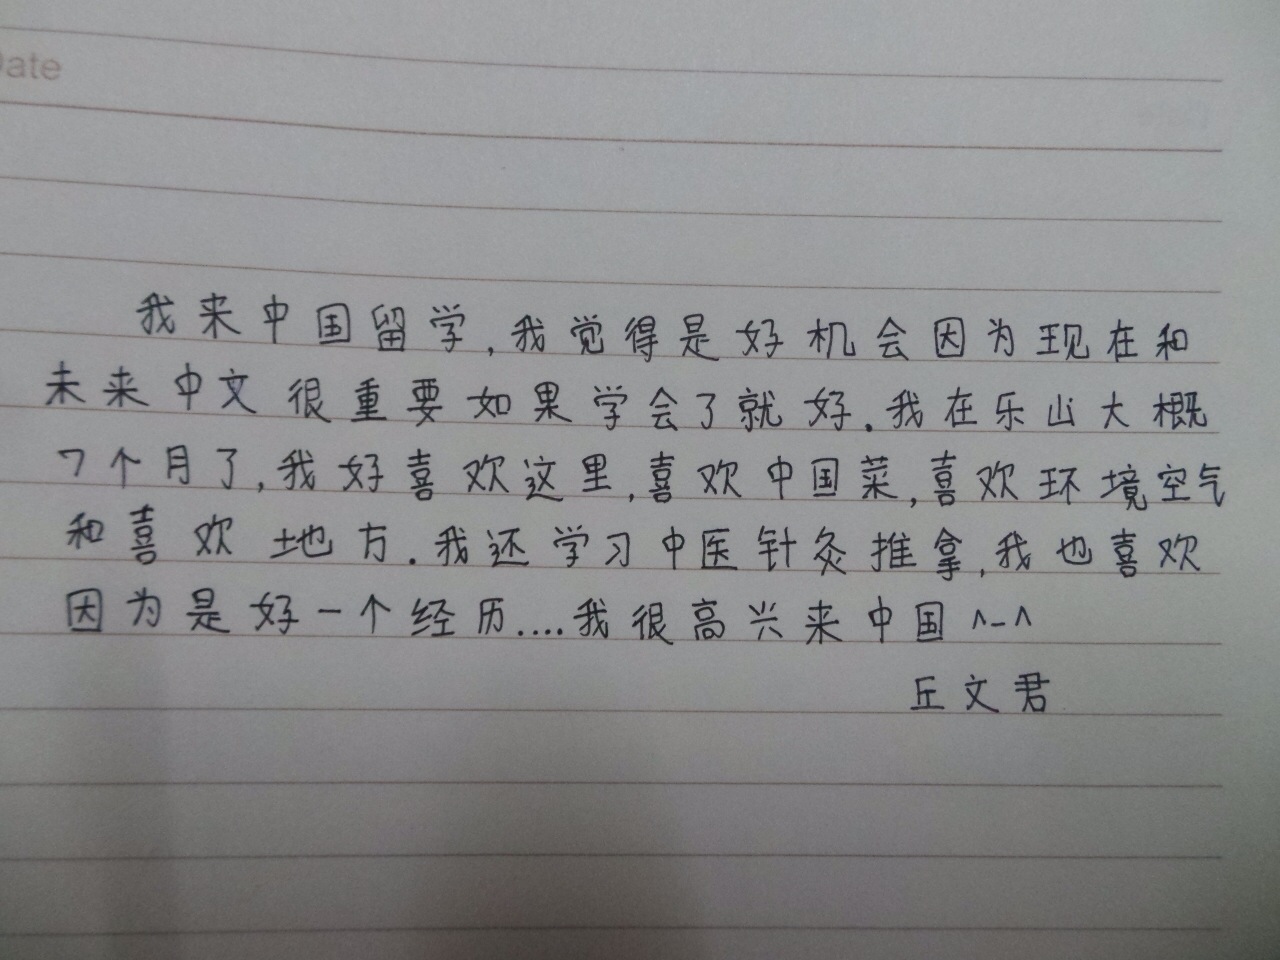 Date
我来中国留学,我觉得是好机会因为现在和
未来中文很重要如果学会了就好.我在乐山大概
7个月了,我好喜欢这里,喜欢中国菜,喜欢环境空气
和喜欢地方.我还学习中医针灸推拿,我也喜欢
因为是好一个经历....我很高兴来中国^-^
丘文君